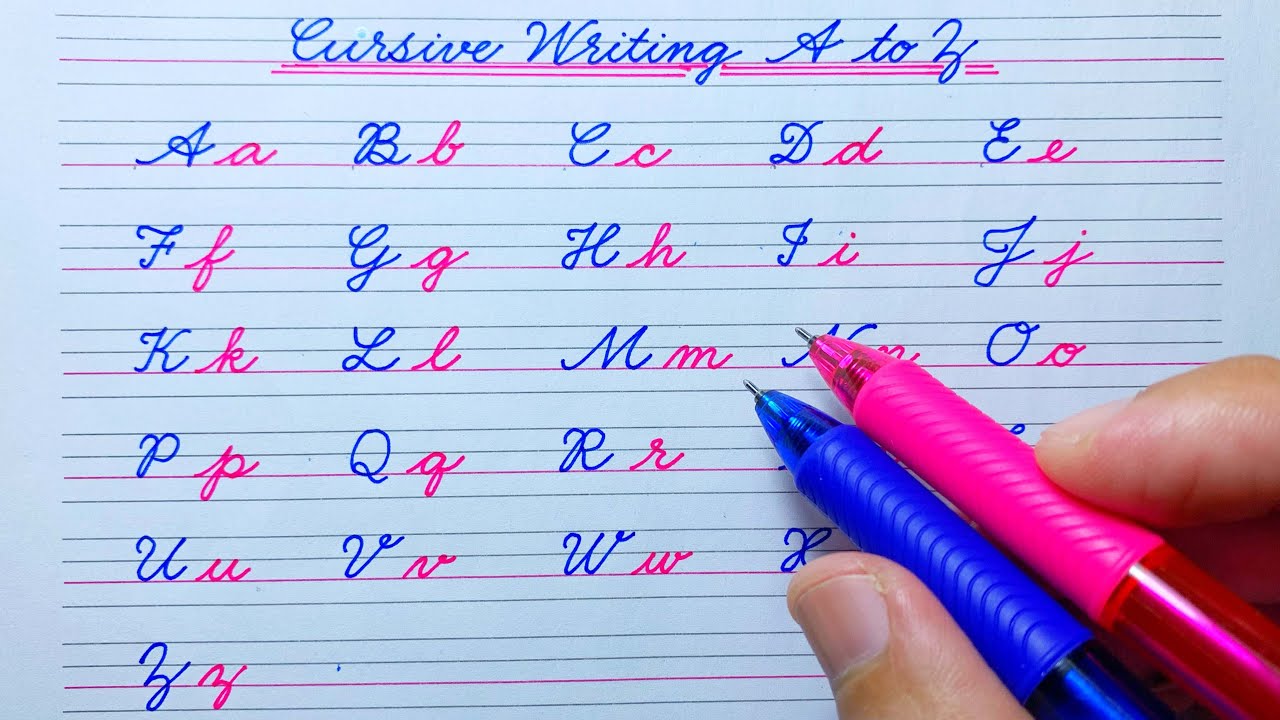 Cursive Writing A to Z
A a B b C c D d E e
F f G g H h I i J j
K k L l M m N n O o
P p Q q R r
U u V v W w X
Z z